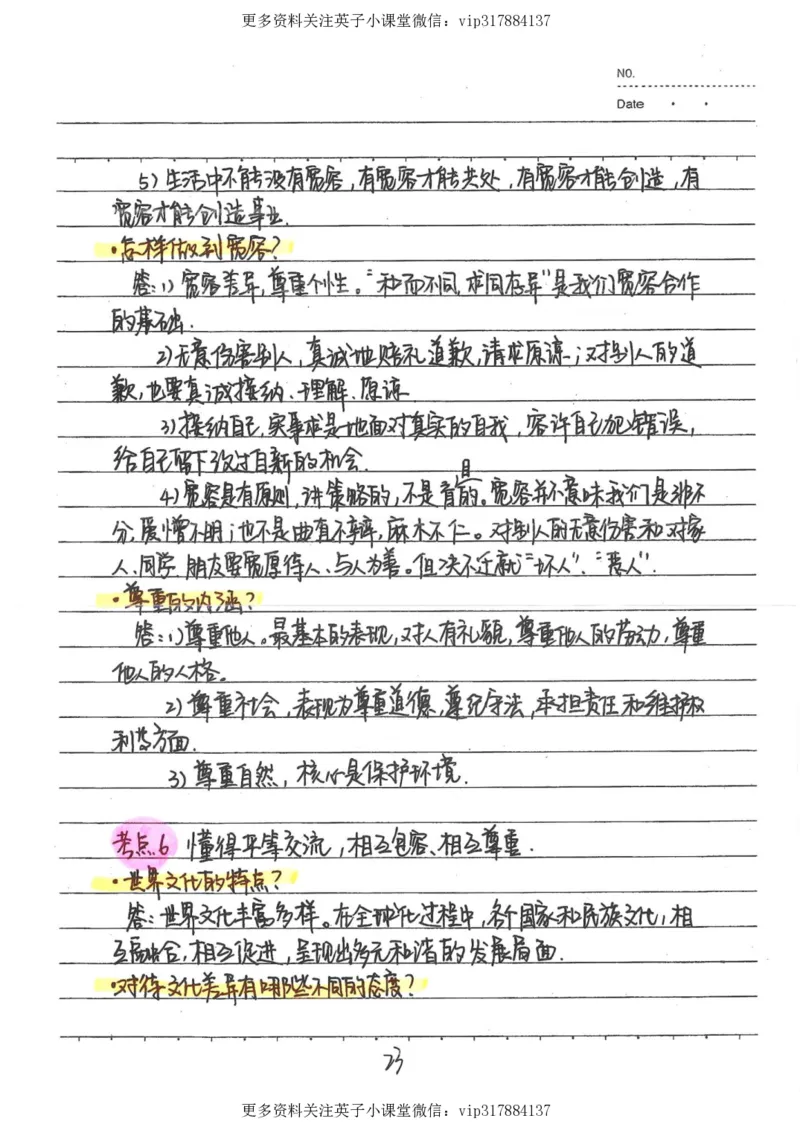 更多资料关注英子小课堂微信：vip317884137
NO.
Date
5）生活中不能没有宽容，有宽容才能共处，有宽容才能创造，有
宽容才能创造事业.
·怎样做到宽容？
答：1）宽容差异，尊重个性。“和而不同，求同存异”是我们宽容合作
的基础.
2）无意伤害别人，真诚地赔礼道歉，请求原谅；对别人的道
歉，也要真诚接纳、理解、原谅.
3）接纳自己，实事求是地面对真实的自我，容许自己犯错误，
给自己留下改过自新的机会.
目
4）宽容是有原则，讲策略的，不是盲的。宽容并不意味我们是非不
分，爱憎不明；也不是曲直不辨，麻木不仁。对别人的无意伤害和对家
人、同学、朋友要宽厚待人、与人为善。但决不迁就“坏人”、“恶人”.
·尊重的内涵？
答：1）尊重他人。最基本的表现，对人有礼貌，尊重他人的劳动，尊重
他人的人格。
2）尊重社会，表现为尊重道德，遵纪守法，承担责任和维护权
利等方面.
3）尊重自然，核心是保护环境.
考点.6 懂得平等交流，相互包容、相互尊重.
·世界文化的特点？
答：世界文化丰富多样。在全球化过程中，各个国家和民族文化，相
互融合，相互促进，呈现出多元和谐的发展局面.
·对待文化差异有哪些不同的态度？
23
更多资料关注英子小课堂微信：vip317884137